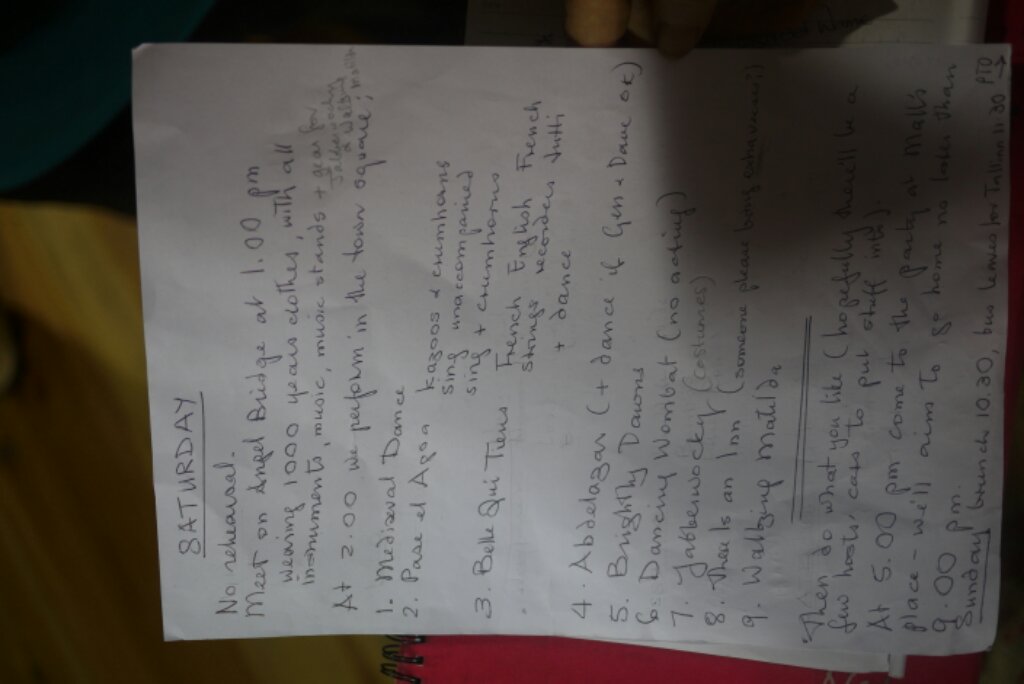 SATURDAY
No rehearsal.
Meet on Angel Bridge at 1.00 pm
wearing 1000 years clothes, with all
instruments, music, music stands + gear for
Jabberwocky
& Waltzing Matilda
At 2.00 we perform in the town square;
1. Medieval Dance
2. Pase el Agoa kazoos & crumhorns
sing unaccompanied
sing + crumhorns
3. Belle Qui Tiens French English French
strings recorders tutti
+ dance
4. Abdelazar (+ dance if Gen & Dave OK)
5. Brightly Dawns
6. Dancing Wombat (no acting)
7. Jabberwocky (costumes)
8. There is an Inn (someone please bring extra music;)
9. Waltzing Matilda
Then do what you like (hopefully there'll be a
few hosts' cars to put stuff into).
At 5.00 pm come to the party at Mall's
place - we'll aims to go home no later than
9.00 pm.
Sunday brunch 10.30, bus leaves for Tallinn 11.30 PTO →